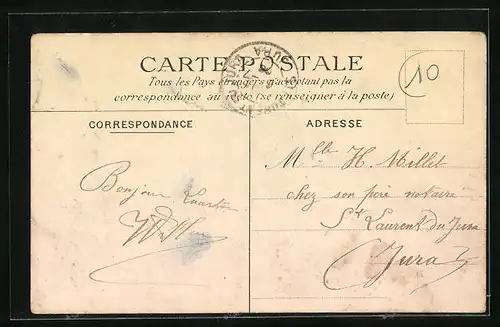 CARTE POSTALE
Tous les Pays étrangers n'acceptant pas la
correspondance au recto (se renseigner à la poste)
10
JURA
CORRESPONDANCE
ADRESSE
Mlle H. Millet
chez son père notaire
St Laurent du Jura
Jura
Bonjour